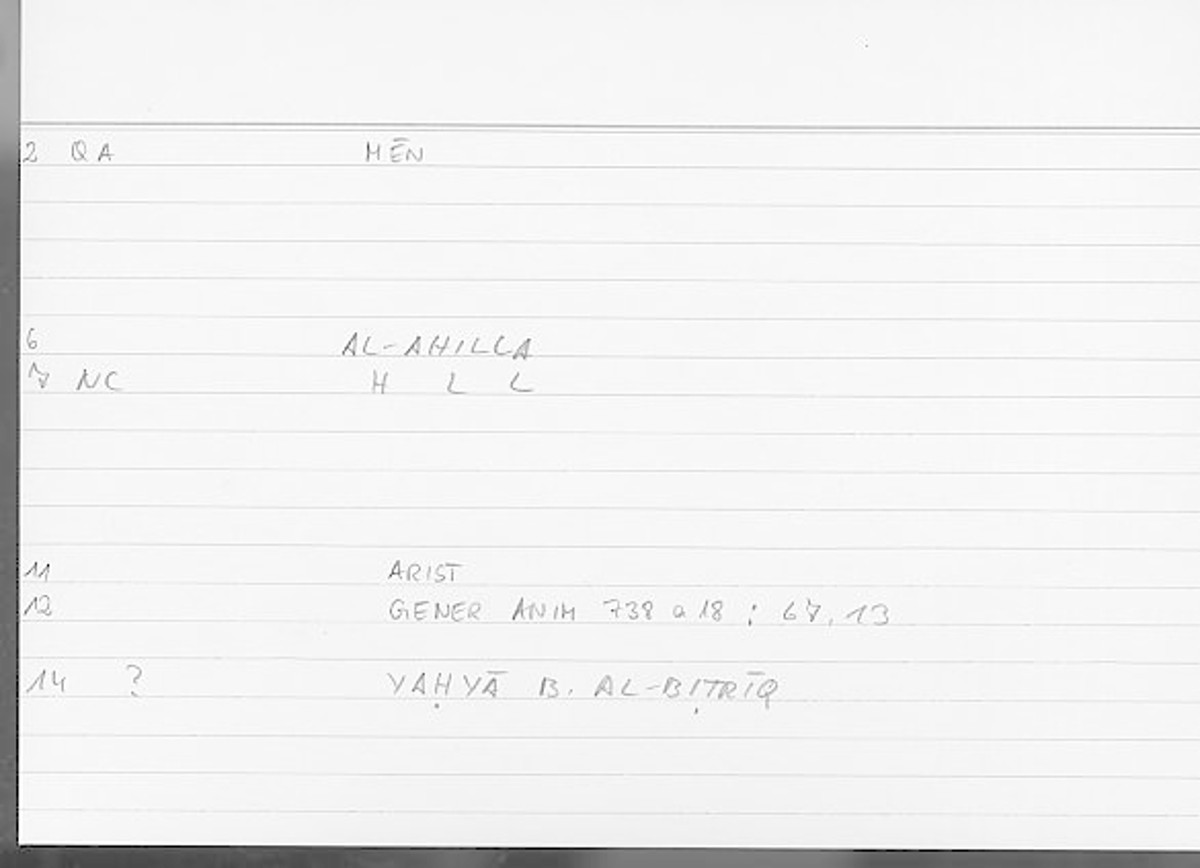 2 QA MĒN
6 AL-AHILLA
7 NC H L L
11 ARIST
12 GENER ANIM 738 a 18 ; 67, 13
14 ? YAḤYĀ B. AL-BIṬRĪQ